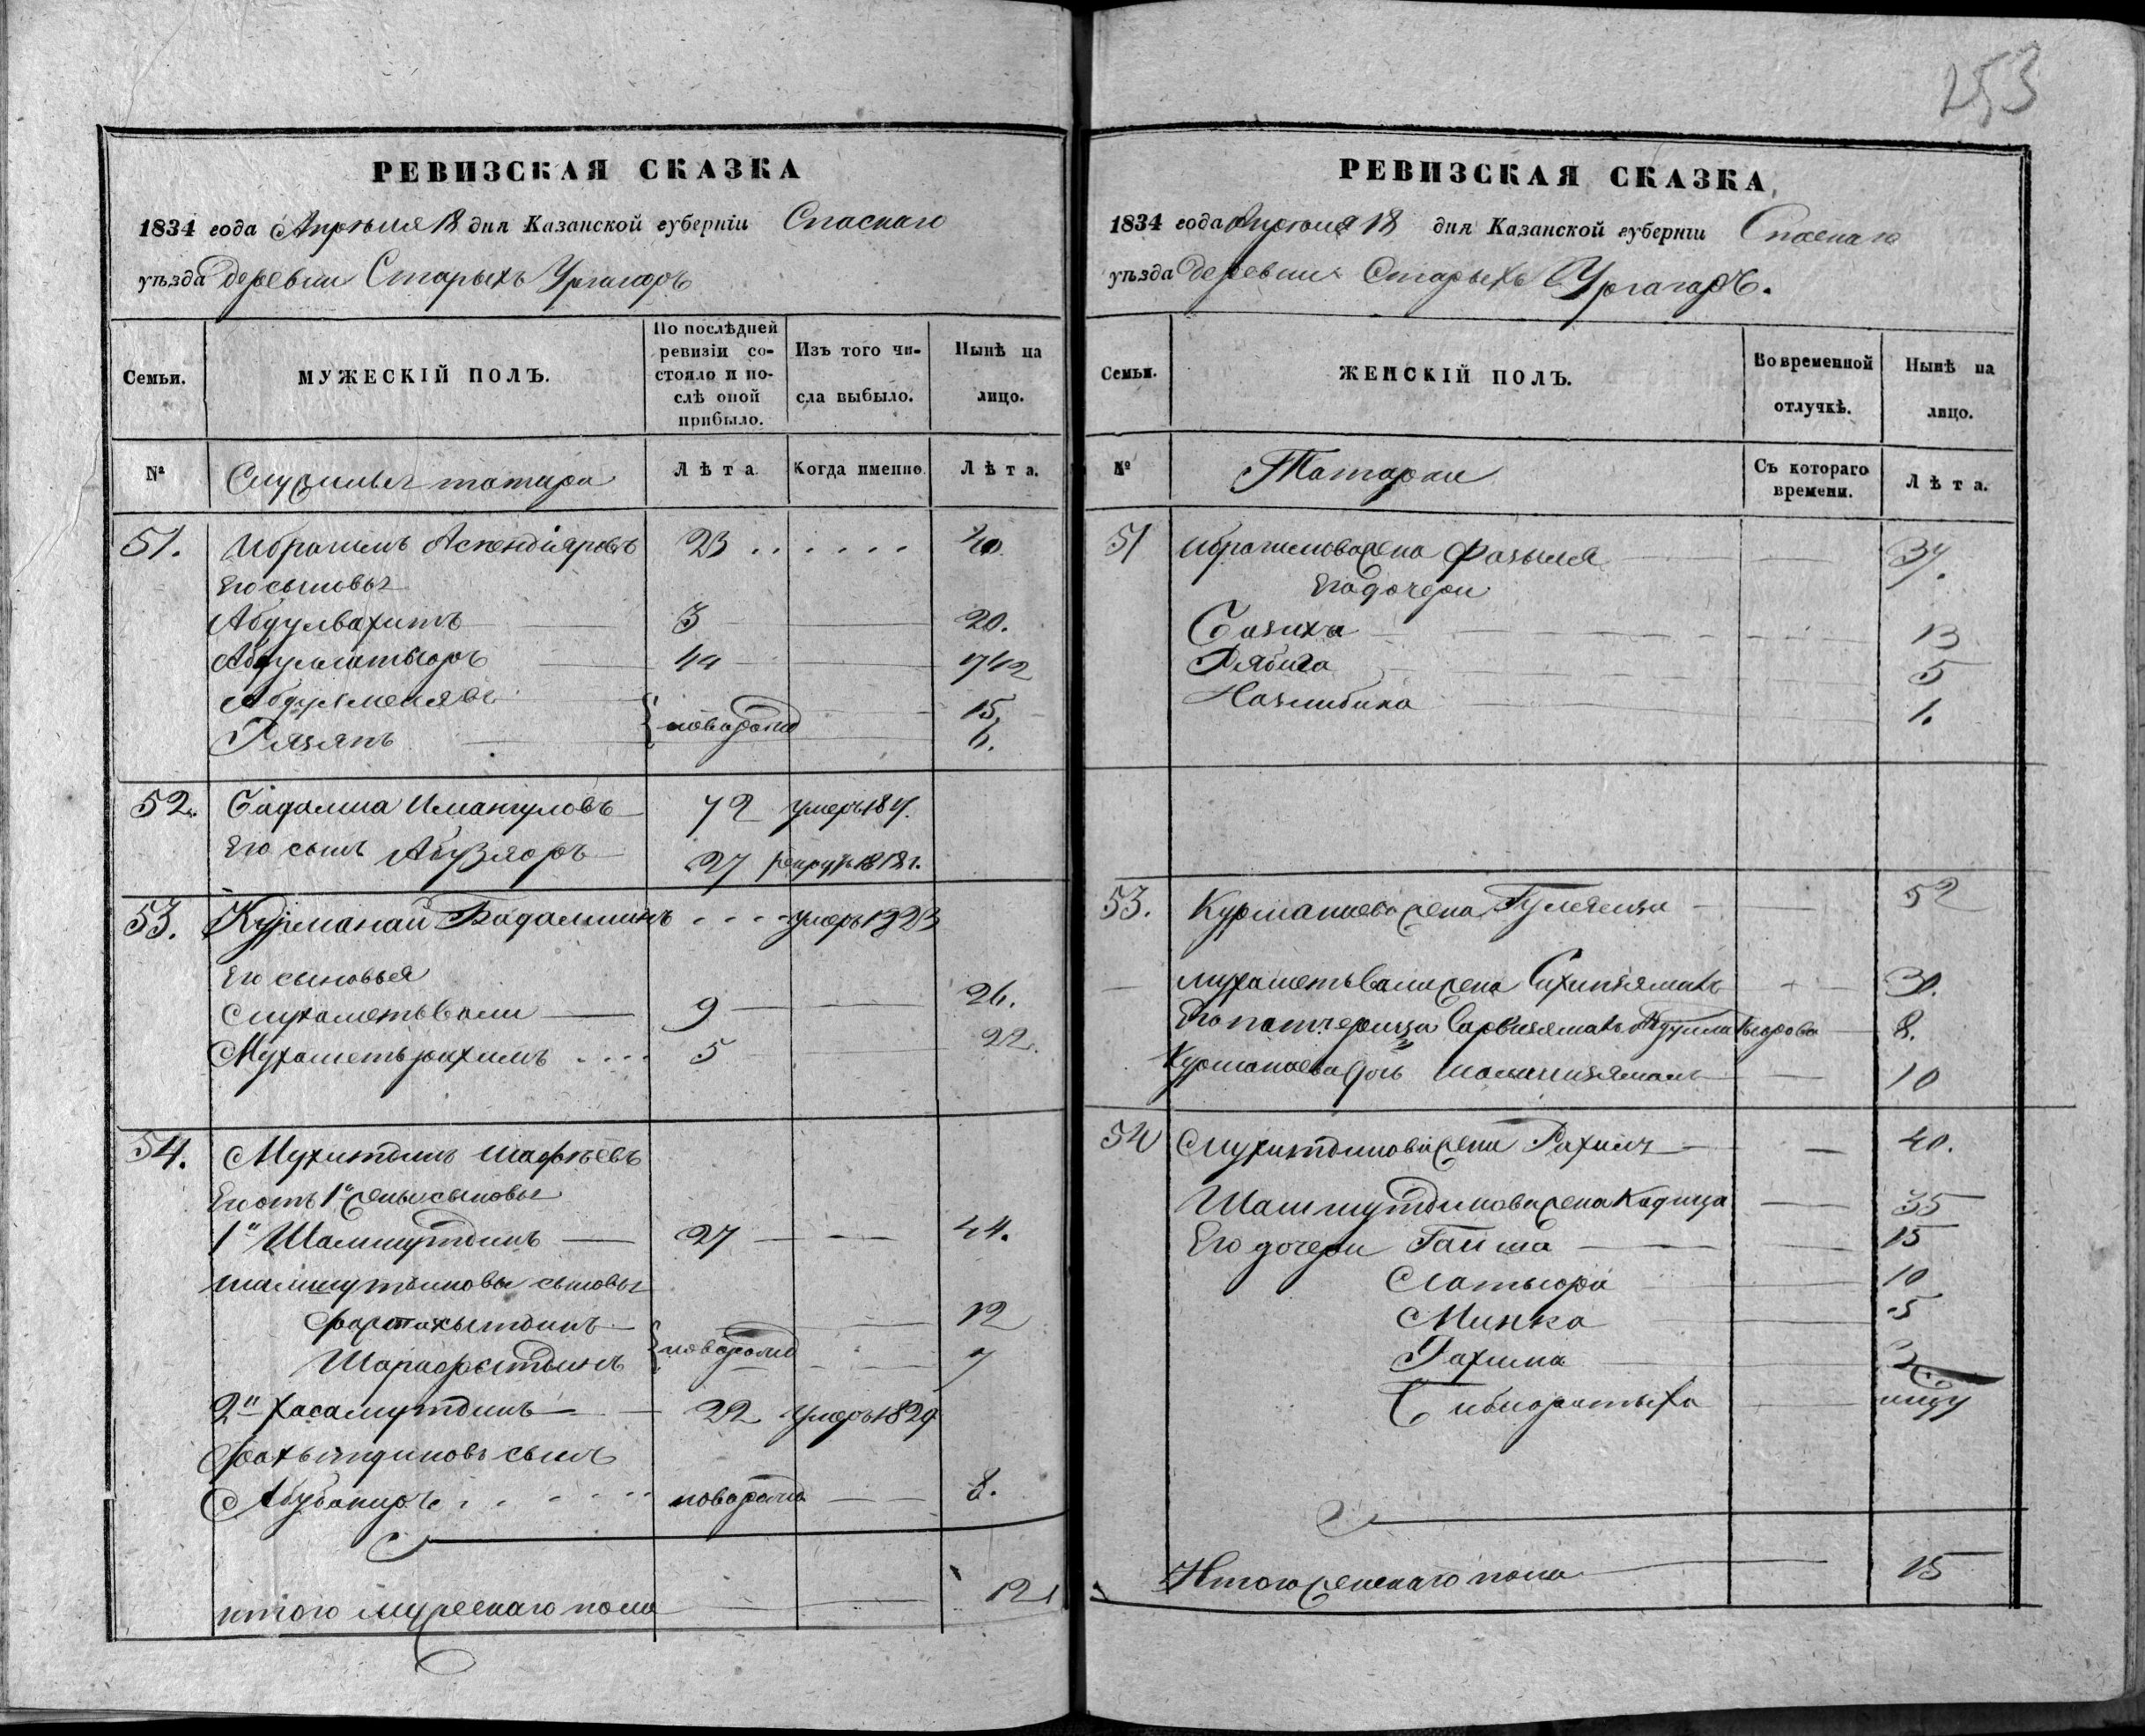 253
РЕВИЗСКАЯ СКАЗКА
1834 года Апрѣля 18 дня Казанской губерніи Спаскаго
уѣзда деревни Старыхъ Ургагаръ
Семьи.
МУЖЕСКІЙ ПОЛЪ.
По послѣдней ревизіи состояло и послѣ оной прибыло.
Изъ того числа выбыло.
Нынѣ на лицо.
№
Служилыя татара
Лѣта
Когда именно
Лѣта.
51. Ибрагимъ Аскендіяровъ 23 40
Его сыновья
Абдулвахитъ 3 20.
Абдулгатьюръ
Абдулменявъ 15
Рязяпъ новорожд 6.
52. Бадамша Имангуловъ 72 умеръ 181
Его сынъ Абузяръ 27 рекрутъ 1818 г.
53. Курманай Бадамшинъ умеръ 1823
Его сыновья
Мухаметьвали 9 26.
Мухаметьрахимъ 5 22.
54. Мухитдинъ Шафѣевъ
Его отъ 1й жены сыновья
1й Шамшутдинъ 27 44.
Шамшутдиновы сыновья
Фартахытдинъ 12
Шарафытдинъ новорожд 7
2й Хасамутдинъ 22 умеръ 1829
сынъ
Абубакиръ новорожд 8.
итого мужескаго пола 12
РЕВИЗСКАЯ СКАЗКА
1834 года Апрѣля 18 дня Казанской губерніи Спаскаго
уѣзда деревни Старыхъ Ургагаръ.
Семьи.
ЖЕНСКІЙ ПОЛЪ.
Во временной отлучкѣ.
Нынѣ на лицо.
№
Татарки
Съ котораго времени.
Лѣта.
51 Ибрагимова жена Фазыля 37.
Его дочери
Базиха 13
Рябига 5
Назлибика 1.
53. Курманаева жена 52
Мухаметьвали жена 30.
Его патчерица 8.
Курманаева дочь 10
54 Мухитдинова жена Рахимя 40.
Шамшутдинова жена Кадица 35
Его дочери Гайша 15
Сатыюра 10
Минка 5
Рахима 3
Бибифатыха
Итого женскаго пола 15